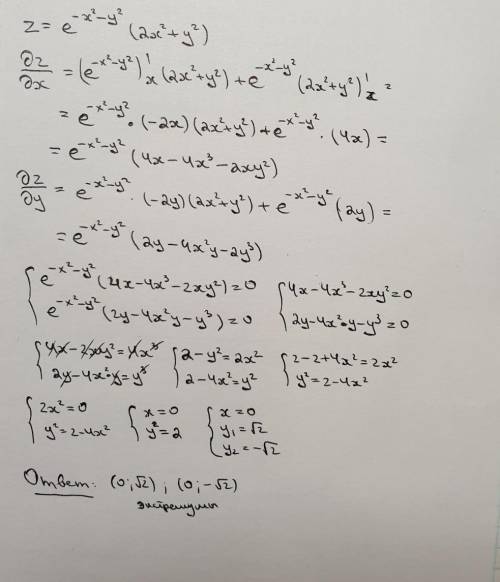 z = e^{-x²-y²} (2x²+y²)
∂z/∂x = (e^{-x²-y²})'ₓ (2x²+y²) + e^{-x²-y²} (2x²+y²)'ₓ =
= e^{-x²-y²} · (-2x)(2x²+y²) + e^{-x²-y²} · (4x) =
= e^{-x²-y²} (4x - 4x³ - 2xy²)
∂z/∂y = e^{-x²-y²} · (-2y)(2x²+y²) + e^{-x²-y²} (2y) =
= e^{-x²-y²} (2y - 4x²y - 2y³)
{ e^{-x²-y²} (4x - 4x³ - 2xy²) = 0 { 4x - 4x³ - 2xy² = 0
e^{-x²-y²} (2y - 4x²y - y³) = 0 2y - 4x²·y - y³ = 0
{ 4x - 2xy² = 4x³ { 2 - y² = 2x² { 2 - 2 + 4x² = 2x²
2y - 4x²·y = y³ 2 - 4x² = y² y² = 2 - 4x²
{ 2x² = 0 { x = 0 { x = 0
y² = 2 - 4x² y² = 2 y₁ = √2
y₂ = -√2
Ответ: (0; √2) ; (0; -√2)
экстремумы